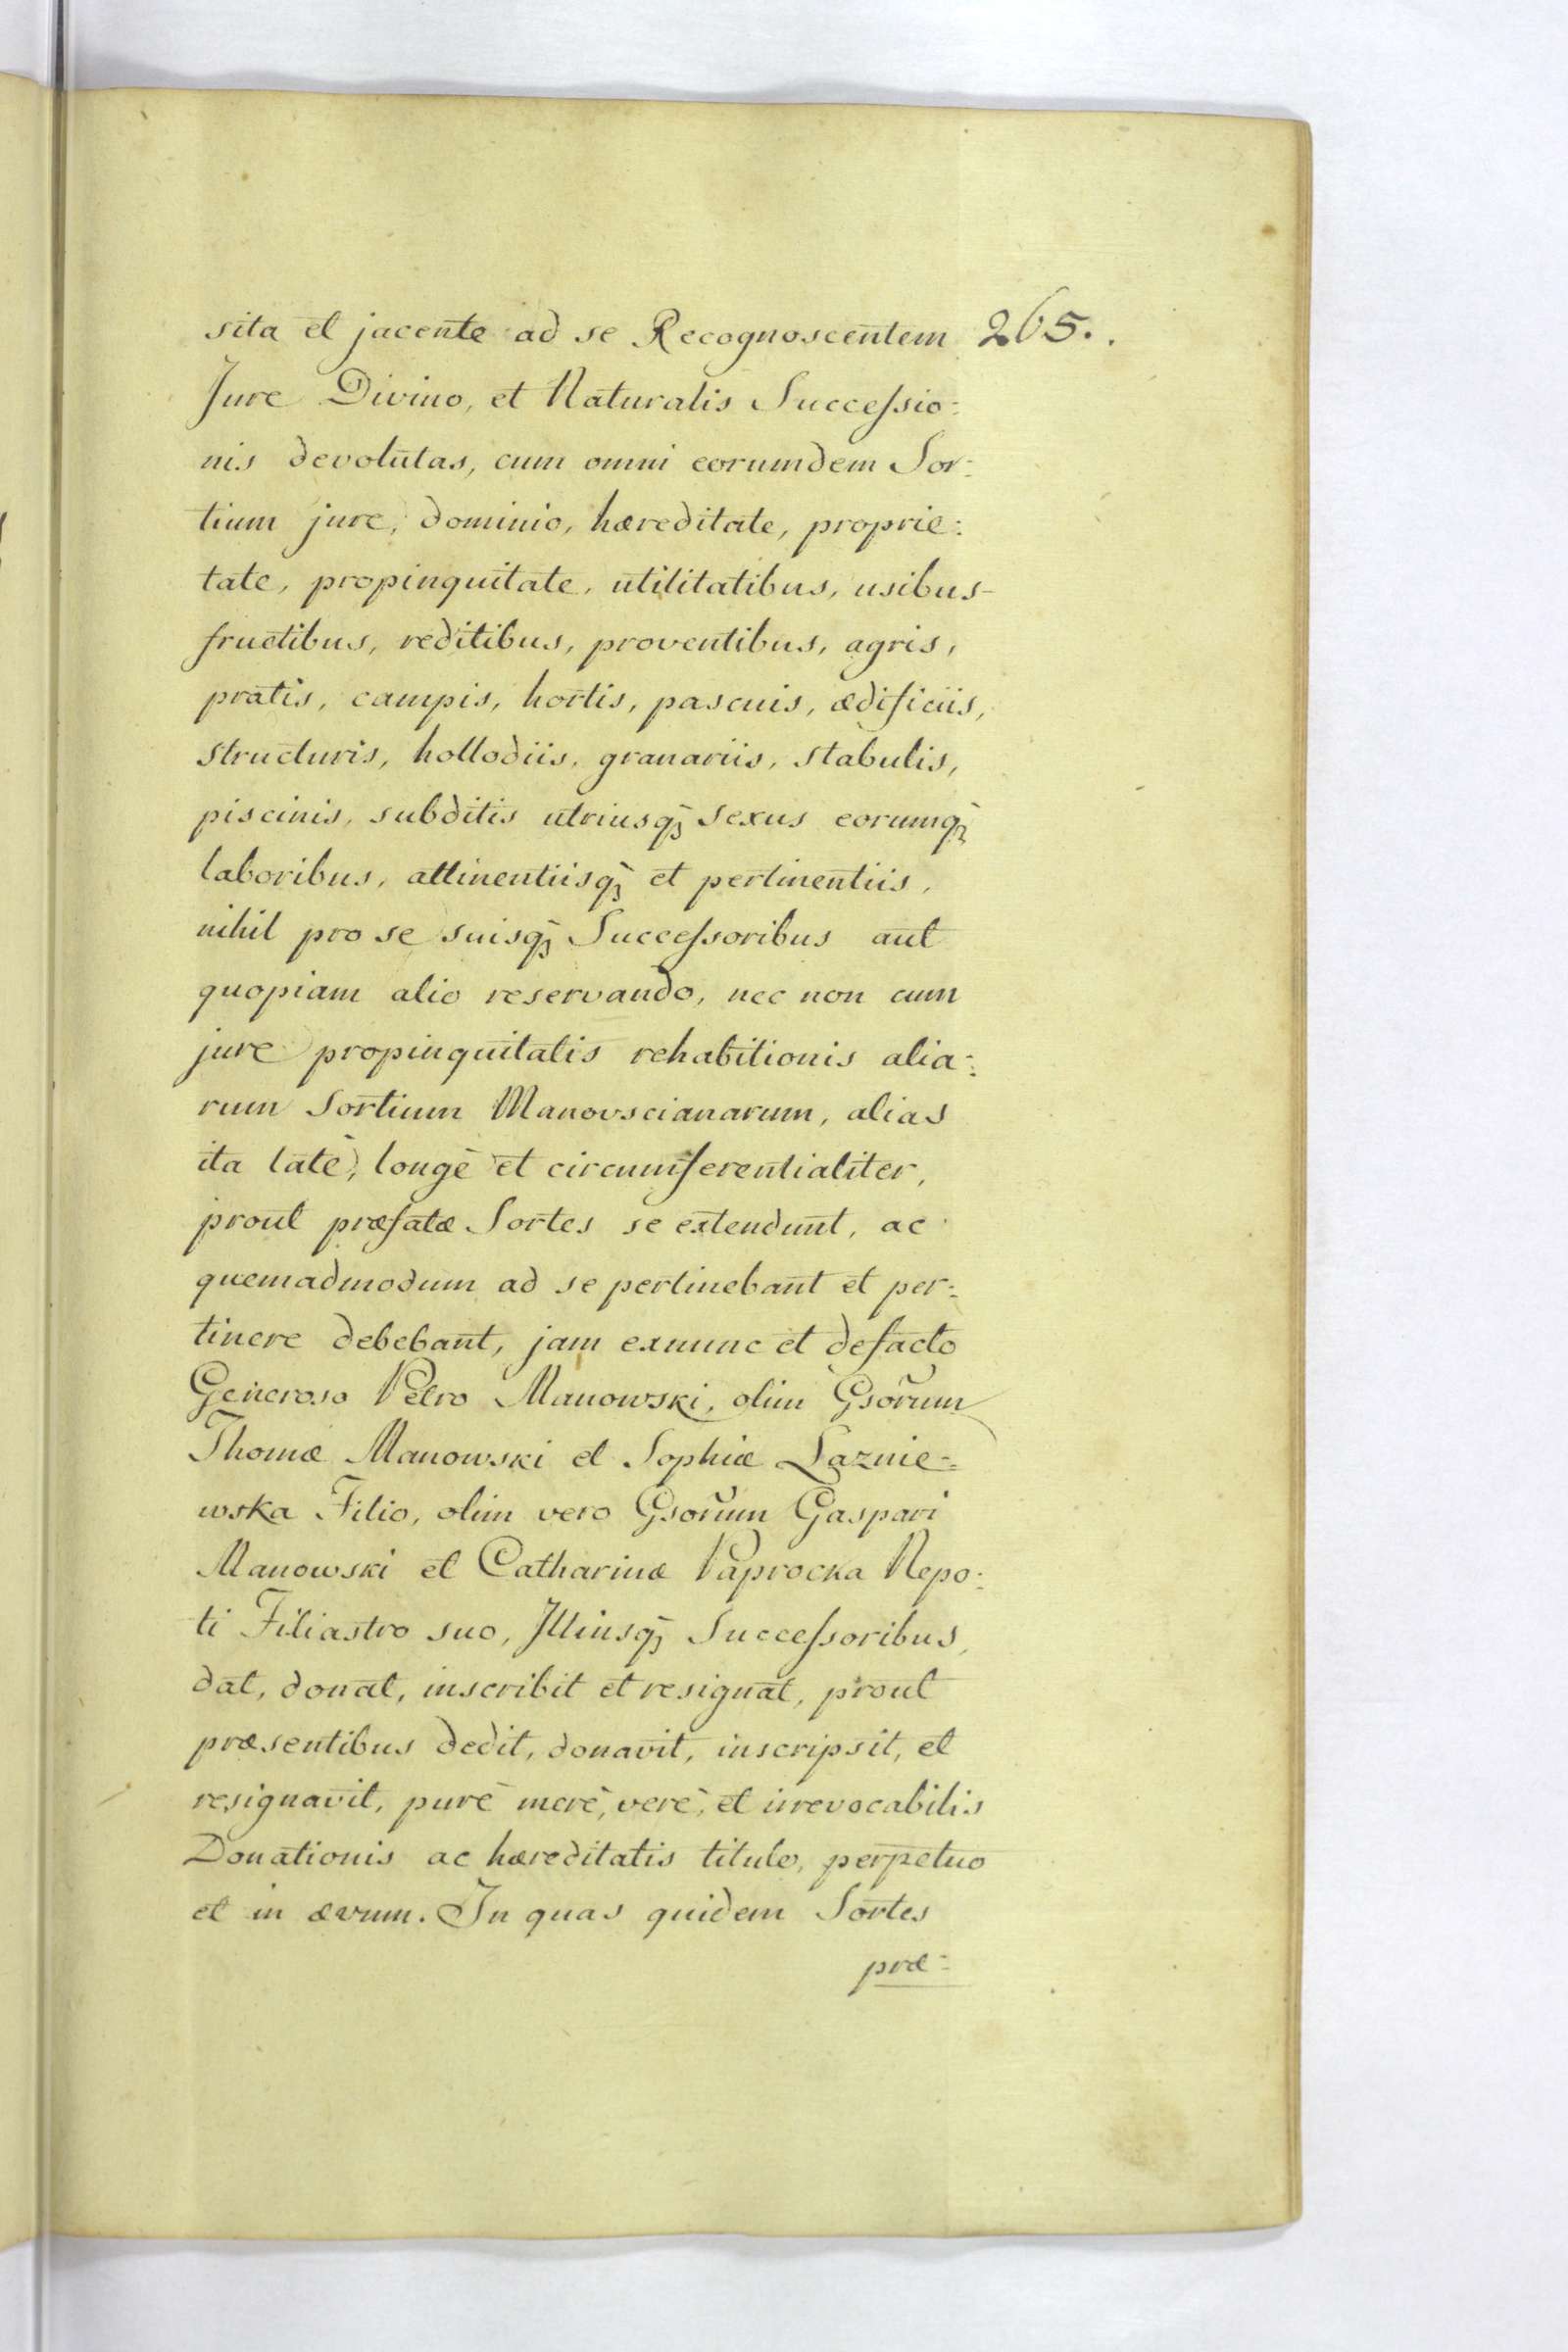 sita et jacente ad se Recognoscentem 265..
Jure Divino, et Naturalis Successio:
nis devolutas, cum omni eorumdem Sor:
tium jure, dominio, hæreditate, proprie:
tate, propinquitate, utilitatibus, usibus-
fructibus, reditibus, proventibus, agris,
pratis, campis, hortis, pascuis, ædificiis,
structuris, hollodiis, granariis, stabulis,
piscinis, subditis utriusqꝫ sexus eorumqꝫ
laboribus, attinentiisqꝫ et pertinentiis,
nihil pro se suisqꝫ Successoribus aut
quopiam alio reservando, nec non cum
jure propinquitatis rehabitionis alia:
rum Sortium Manovscianarum, alias
ita latè, longè et circumferentialiter,
prout præfatæ Sortes se extendunt, ac
quemadmodum ad se pertinebant et per:
tinere debebant, jam exnunc et defacto
Generoso Petro Manowski, olim Gsorum
Thomæ Manowski et Sophiæ Laznie:
wska Filio, olim vero Gsorum Gaspari
Manowski et Catharinæ Paprocka Nepo:
ti Filiastro suo, Illiusqꝫ Successoribus,
dat, donat, inscribit et resignat, prout
præsentibus dedit, donavit, inscripsit, et
resignavit, purè merè, verè, et irrevocabilis
Donationis ac hæreditatis titulo, perpetuo
et in ævum. In quas quidem Sortes
præ: